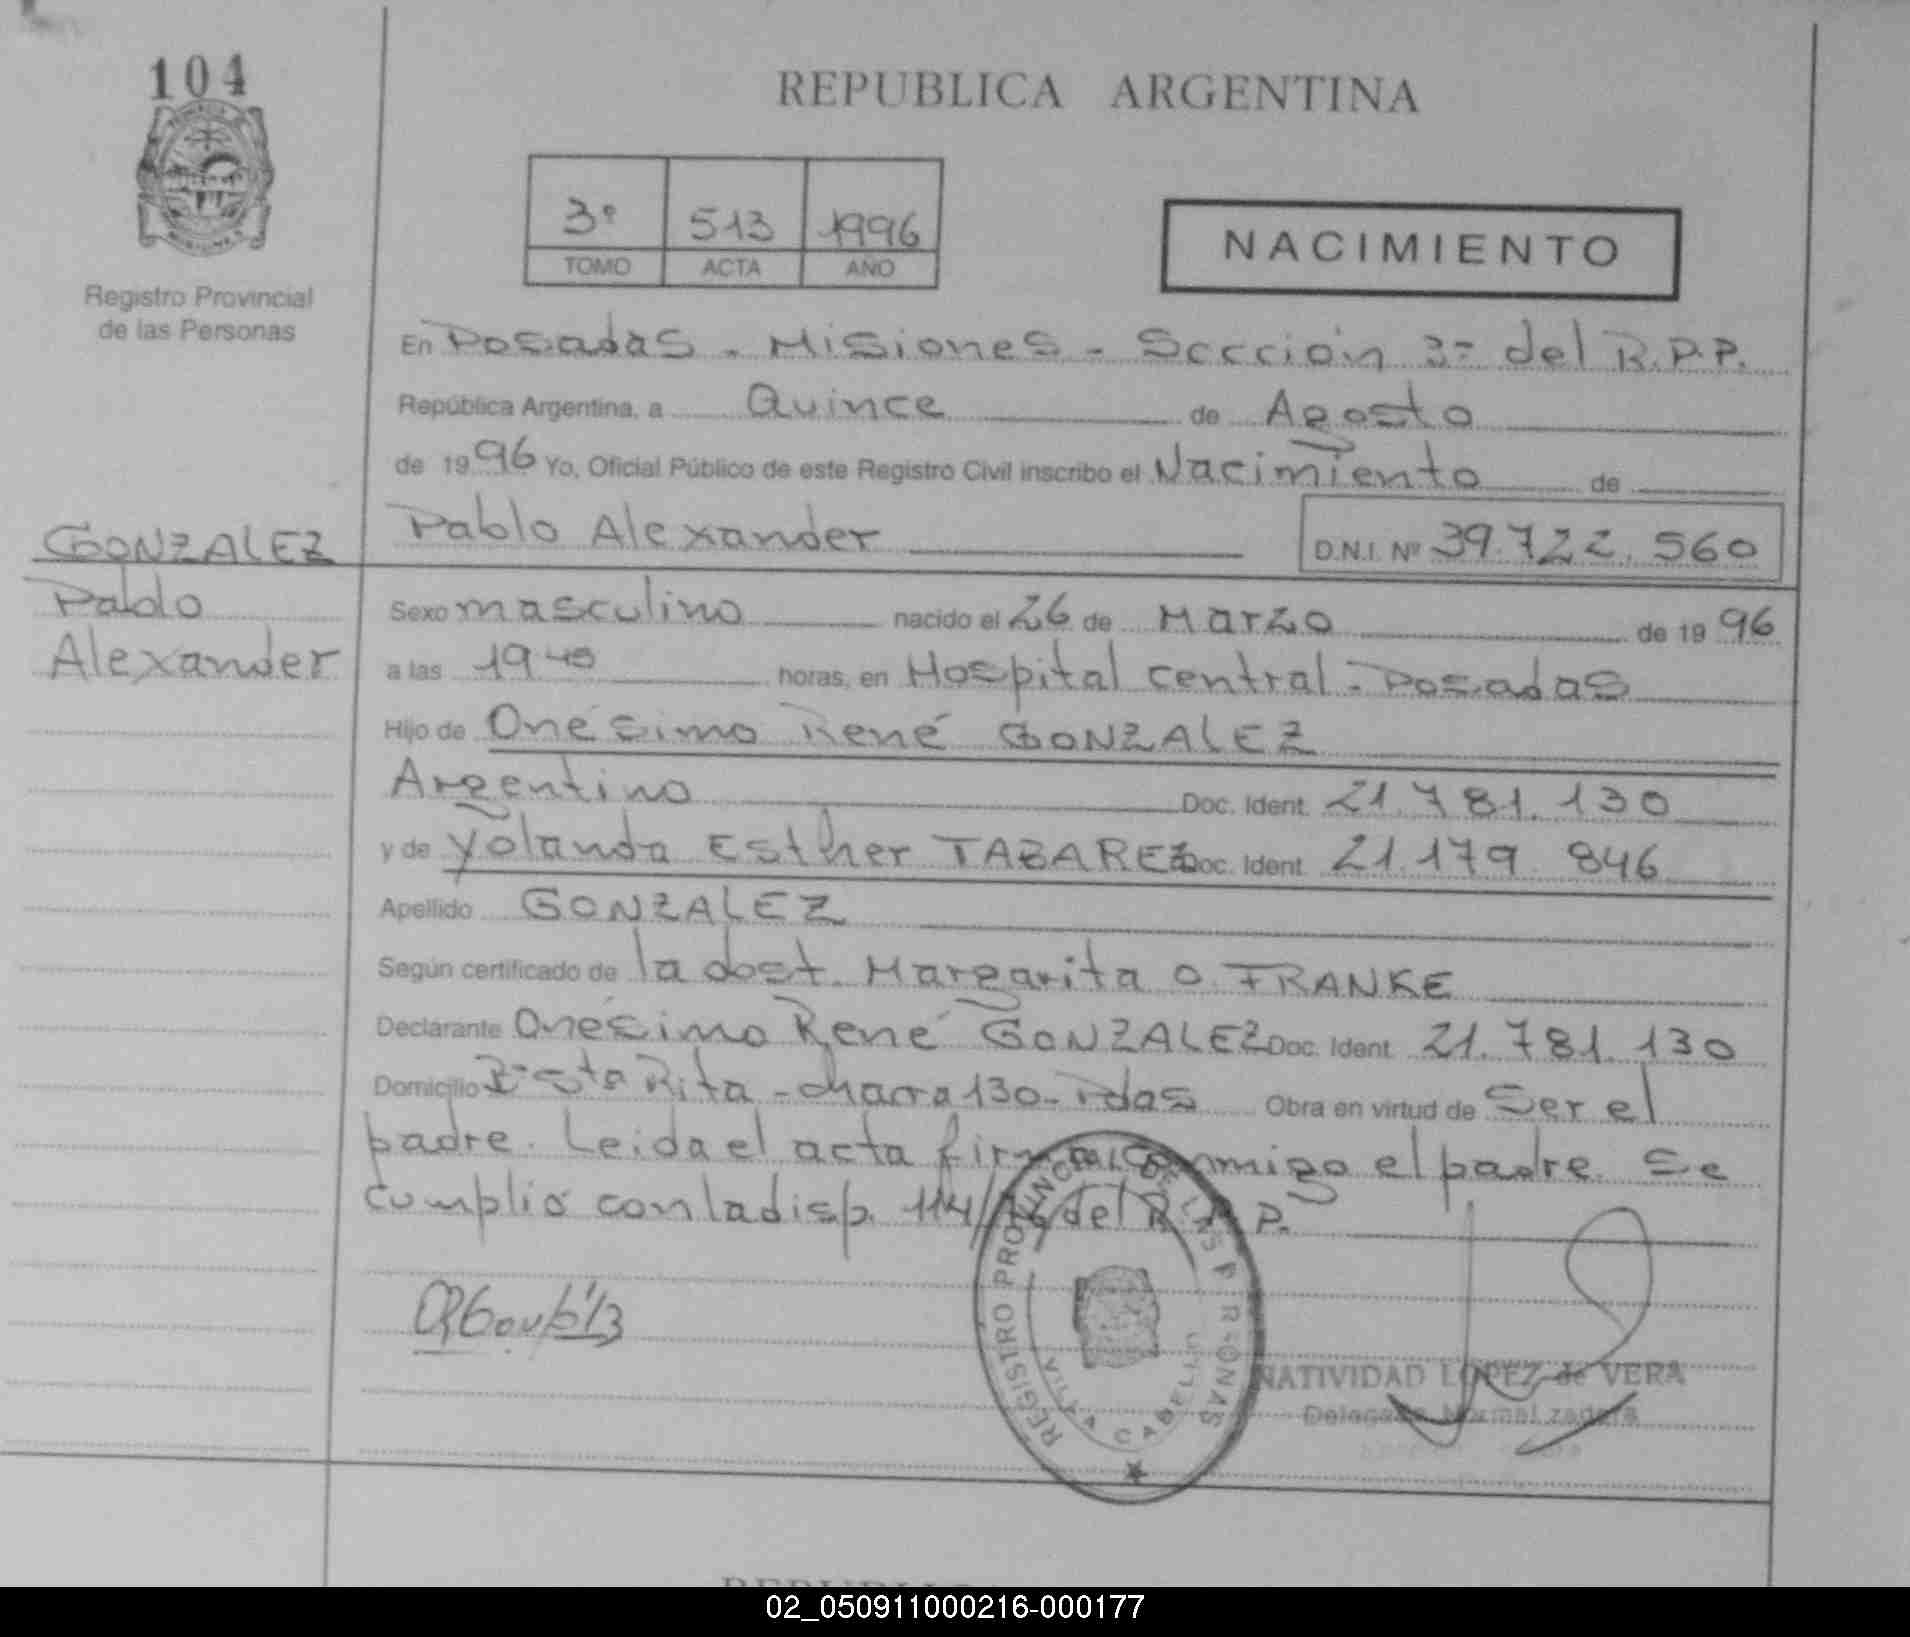 104
REPUBLICA ARGENTINA
3º 513 1996
TOMO ACTA AÑO
NACIMIENTO
Registro Provincial
de las Personas
En Posadas - Misiones - Sección 3º del R.P.P.
República Argentina, a Quince de Agosto
de 1996 Yo, Oficial Público de este Registro Civil inscribo el Nacimiento de
GONZALEZ
Pablo
Alexander
Pablo Alexander D.N.I. Nº 39.722.560
Sexo masculino nacido el 26 de Marzo de 1996
a las 19 40 horas, en Hospital central - Posadas
Hijo de Onésimo René GONZALEZ
Argentino Doc. Ident. 21.781.130
y de Yolanda Esther TABAREZ Doc. Ident. 21.179.846
Apellido GONZALEZ
Según certificado de la obst. Margarita O. FRANKE
Declarante Onésimo René GONZALEZ Doc. Ident. 21.781.130
Domicilio Bº Sta Rita - chacra 130 - Pdas Obra en virtud de Ser el
padre. Leida el acta firma conmigo el padre. Se
cumplió con la disp. 114/ del R.P.P.
REGISTRO PROVINCIAL DE LAS PERSONAS
NATIVIDAD LOPEZ de VERA
Delegada Normalizadora
02_050911000216-000177